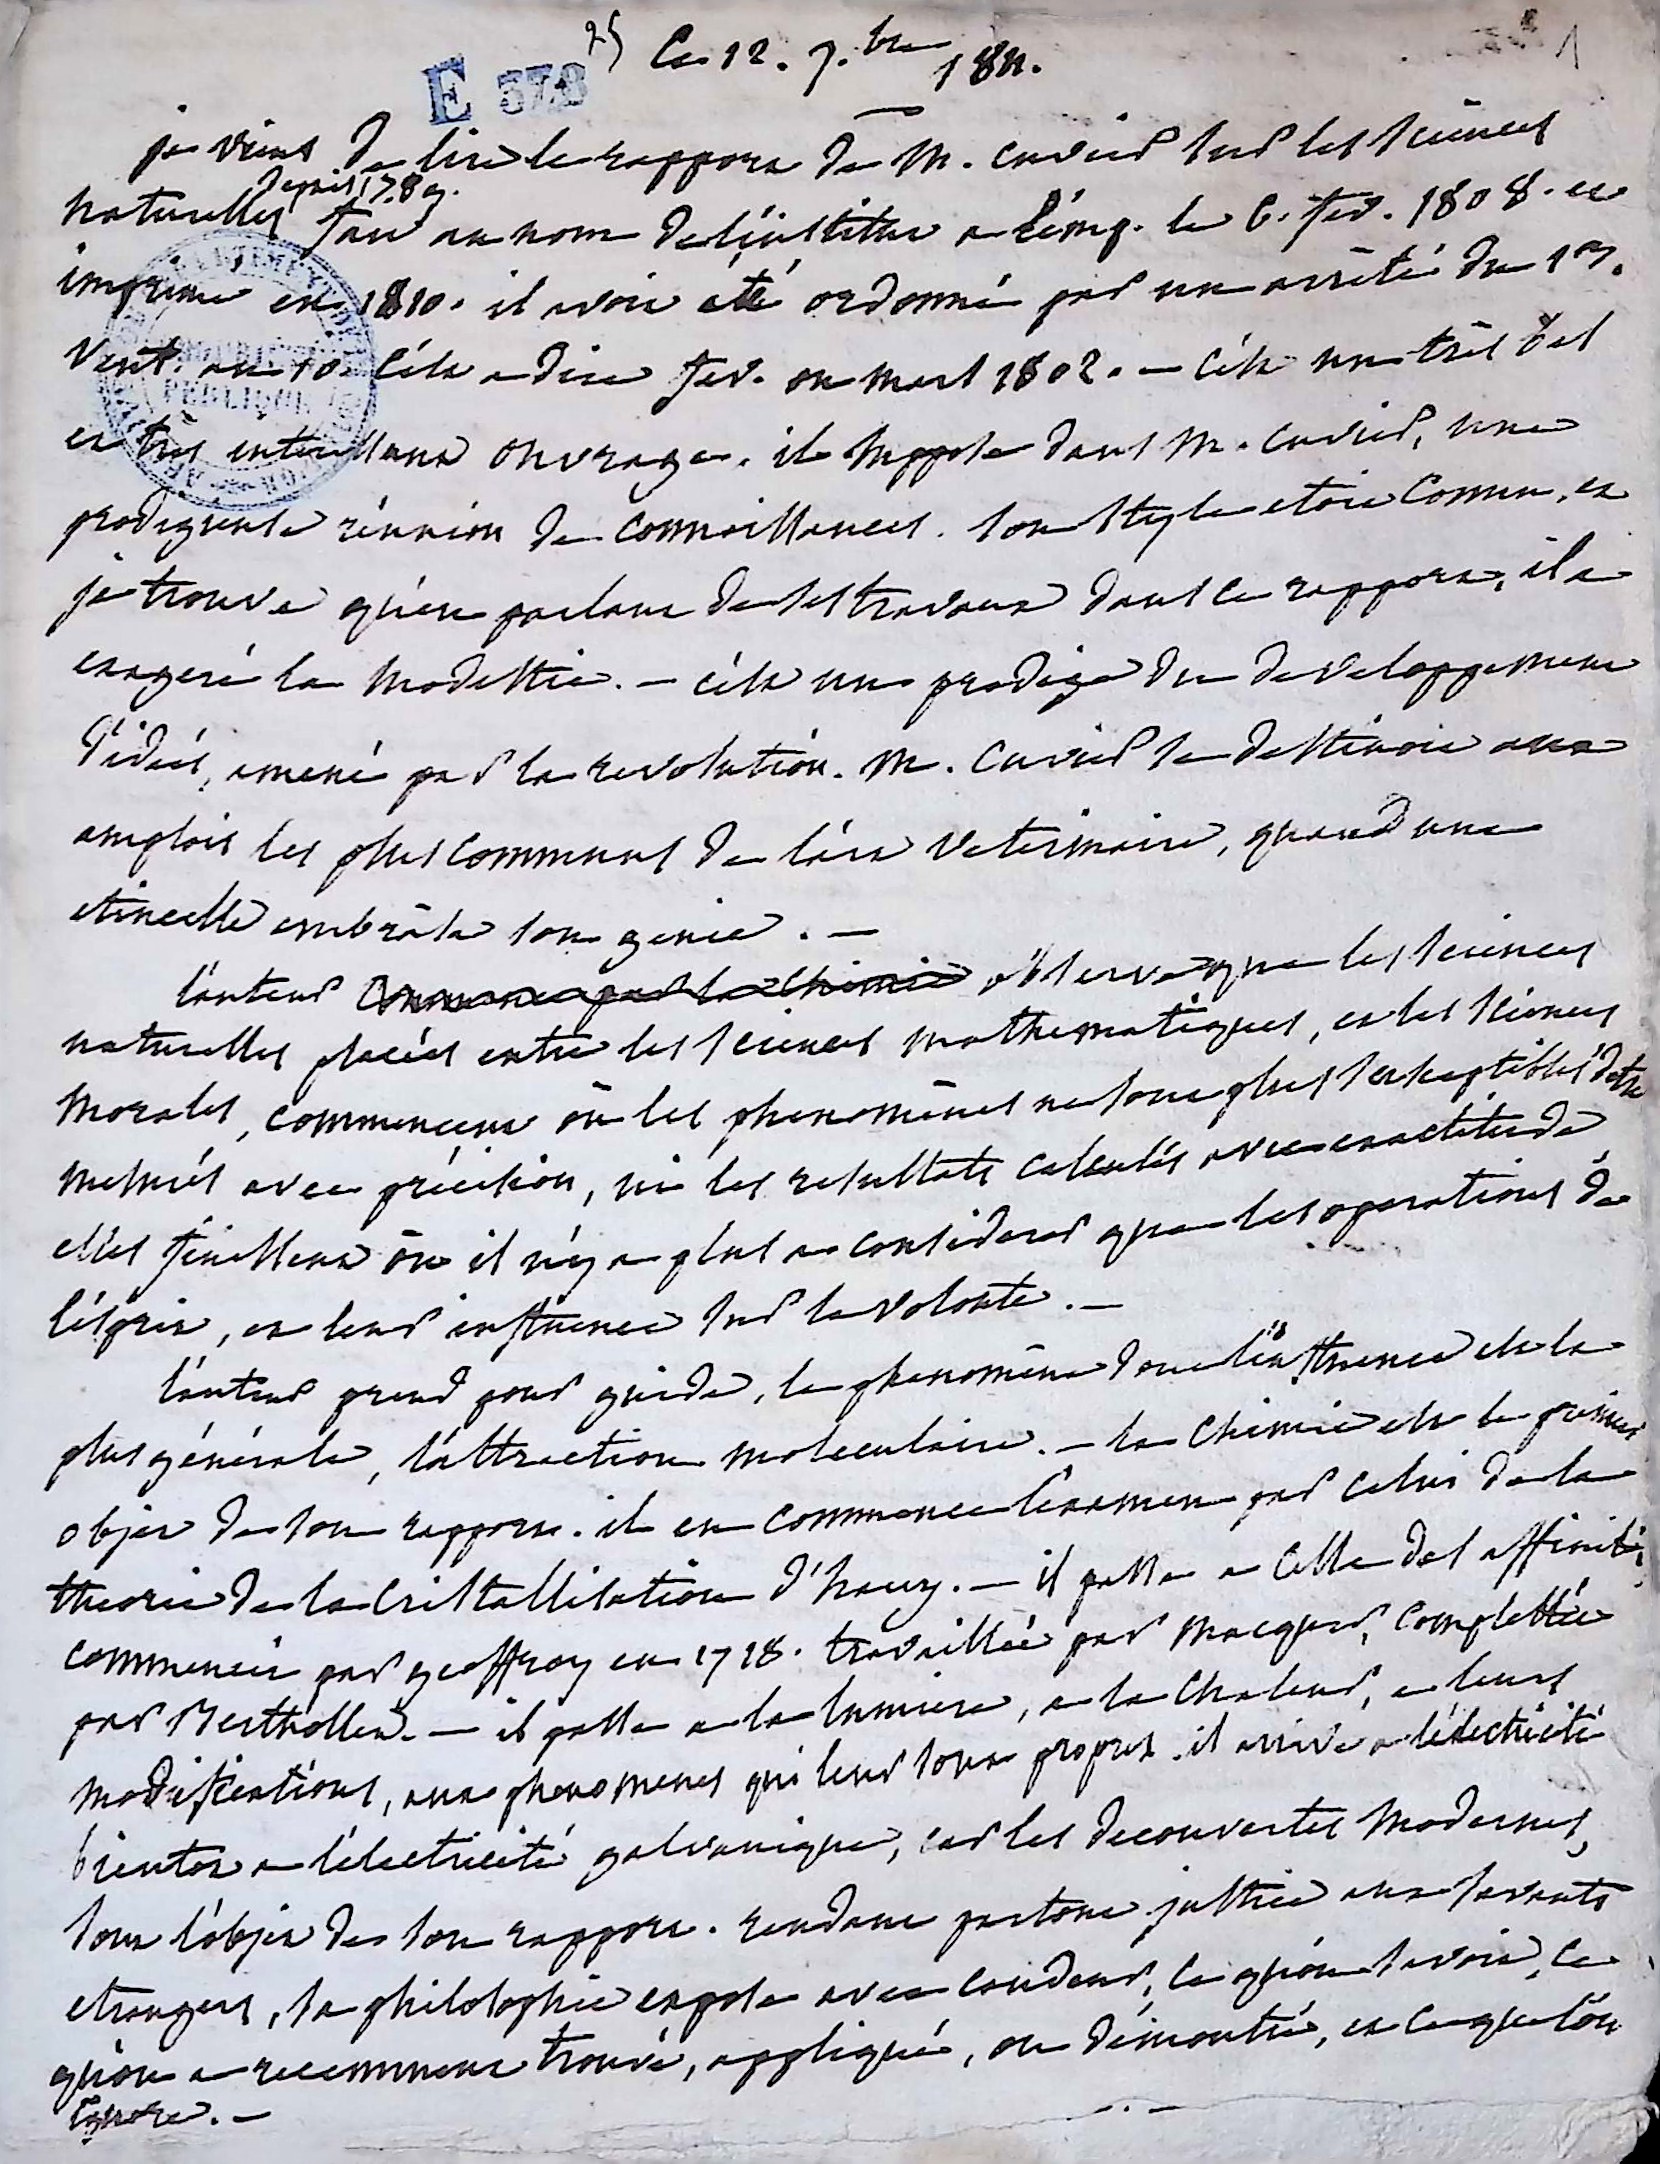 25 Ce 12. 7.bre 1811. 1
E 378
je viens de lire le rapport de M. Cuvier sur les sciences
depuis 1789.
naturelles fait au nom de l'institut a l'emp. le 6. fev. 1808. et
imprimé en 1810. il avoit été ordonné par un arrêté du 1er.
Vent. an 10. c'est a dire fev. ou mars 1802. — c'est un très bel
et très interessant ouvrage. il suppose dans M. Cuvier, une
prodigieuse réunion de connoissances. son style etoit connu, et
je trouve qu'en parlant de ses travaux dans ce rapport, il a
exageré la modestie. — c'est un prodige du developpement
d'idées, amené par la revolution. M. Cuvier se destinoit aux
emplois les plus communs de l'art veterinaire, quand une
etincelle embrâsa son genie. —
l'auteur commence par la chimie observe que les sciences
naturelles placées entre les sciences mathematiques, et les sciences
morales, commencent où les phenomènes ne sont plus susceptibles d'être
mesurés avec précision, ni les resultats calculés avec exactitude,
elles finissent où il n'y a plus a considerer que les operations de
l'esprit, et leur influence sur la volonté. —
l'auteur prend pour guide, le phenomène dont l'influence est la
plus générale, l'attraction moleculaire. — la Chimie est le premier
objet de son rapport. il en commence l'examen par celui de la
theorie de la cristallisation d'hauy. — il passe a celle des affinités,
commencée par geoffroy en 1718. travaillée par Macquer, complettée
par Berthollet. — il passe a la lumiere, a la chaleur, a leurs
modifications, aux phenomenes qui leur sont propres. il arrive a l'électricité
bientot a l'électricité galvanique, car les decouvertes modernes,
sont l'objet de son rapport. rendant partout justice aux savants
etrangers, sa philosophie expose avec candeur, ce qu'on savoit, ce
qu'on a recemment trouvé, appliqué, ou démontré, et ce que l'on
ignore. —